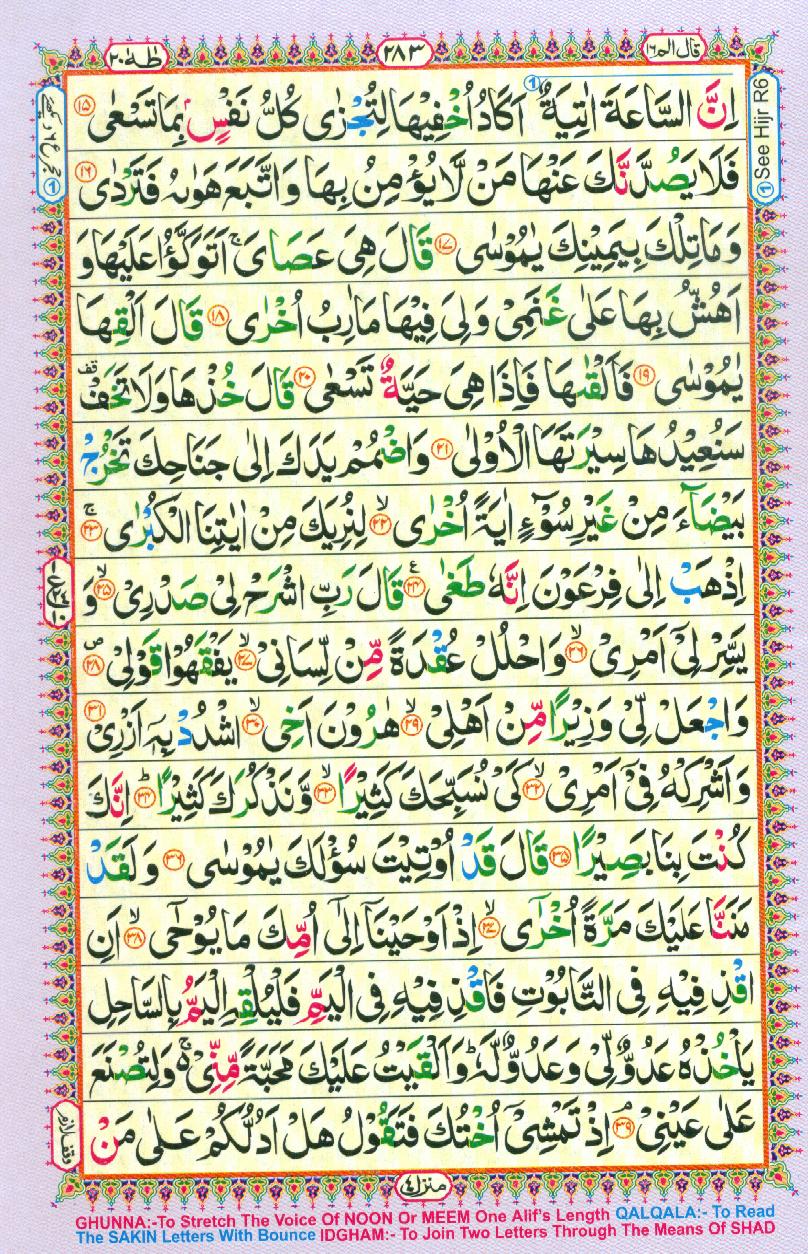 قال الم ١٦
٢٨٣
طٰهٰ ٢٠
① See Hijr R6
اِنَّ السَّاعَةَ اٰتِيَةٌ ① اَكَادُ اُخْفِيْهَا لِتُجْزٰى كُلُّ نَفْسٍۭ بِمَا تَسْعٰى ١٥
فَلَا يَصُدَّنَّكَ عَنْهَا مَنْ لَّا يُؤْمِنُ بِهَا وَاتَّبَعَ هَوٰىهُ فَتَرْدٰى ١٦
وَمَا تِلْكَ بِيَمِيْنِكَ يٰمُوْسٰى ١٧ قَالَ هِىَ عَصَاىَ ۚ اَتَوَكَّؤُا عَلَيْهَا وَ
اَهُشُّ بِهَا عَلٰى غَنَمِىْ وَلِىَ فِيْهَا مَاٰرِبُ اُخْرٰى ١٨ قَالَ اَلْقِهَا
يٰمُوْسٰى ١٩ فَاَلْقٰىهَا فَاِذَا هِىَ حَيَّةٌ تَسْعٰى ٢٠ قَالَ خُذْهَا وَلَا تَخَفْ ۥقف
سَنُعِيْدُهَا سِيْرَتَهَا الْاُوْلٰى ٢١ وَاضْمُمْ يَدَكَ اِلٰى جَنَاحِكَ تَخْرُجْ
بَيْضَآءَ مِنْ غَيْرِ سُوْٓءٍ اٰيَةً اُخْرٰى ۙ ٢٢ لِنُرِيَكَ مِنْ اٰيٰتِنَا الْكُبْرٰى ۚ ٢٣
اِذْهَبْ اِلٰى فِرْعَوْنَ اِنَّهٗ طَغٰى ٢٤ ع قَالَ رَبِّ اشْرَحْ لِىْ صَدْرِىْ ۙ ٢٥ وَ
يَسِّرْ لِىْٓ اَمْرِىْ ۙ ٢٦ وَاحْلُلْ عُقْدَةً مِّنْ لِّسَانِىْ ۙ ٢٧ يَفْقَهُوْا قَوْلِىْ ۪ ٢٨
وَاجْعَلْ لِّىْ وَزِيْرًا مِّنْ اَهْلِىْ ۙ ٢٩ هٰرُوْنَ اَخِى ۙ ٣٠ اشْدُدْ بِهٖٓ اَزْرِىْ ٣١
وَاَشْرِكْهُ فِىْٓ اَمْرِىْ ۙ ٣٢ كَىْ نُسَبِّحَكَ كَثِيْرًا ۙ ٣٣ وَّنَذْكُرَكَ كَثِيْرًا ؕ ٣٤ اِنَّكَ
كُنْتَ بِنَا بَصِيْرًا ٣٥ قَالَ قَدْ اُوْتِيْتَ سُؤْلَكَ يٰمُوْسٰى ٣٦ وَلَقَدْ
مَنَنَّا عَلَيْكَ مَرَّةً اُخْرٰٓى ۙ ٣٧ اِذْ اَوْحَيْنَآ اِلٰٓى اُمِّكَ مَا يُوْحٰٓى ۙ ٣٨ اَنِ
اقْذِفِيْهِ فِى التَّابُوْتِ فَاقْذِفِيْهِ فِى الْيَمِّ فَلْيُلْقِهِ الْيَمُّ بِالسَّاحِلِ
يَاْخُذْهُ عَدُوٌّ لِّىْ وَعَدُوٌّ لَّهٗ ؕ وَاَلْقَيْتُ عَلَيْكَ مَحَبَّةً مِّنِّىْ ۚ وَلِتُصْنَعَ
عَلٰى عَيْنِىْ ۘ ٣٩ اِذْ تَمْشِىْٓ اُخْتُكَ فَتَقُوْلُ هَلْ اَدُلُّكُمْ عَلٰى مَنْ
منزل ٤
GHUNNA:-To Stretch The Voice Of NOON Or MEEM One Alif's Length QALQALA:- To Read
The SAKIN Letters With Bounce IDGHAM:- To Join Two Letters Through The Means Of SHAD